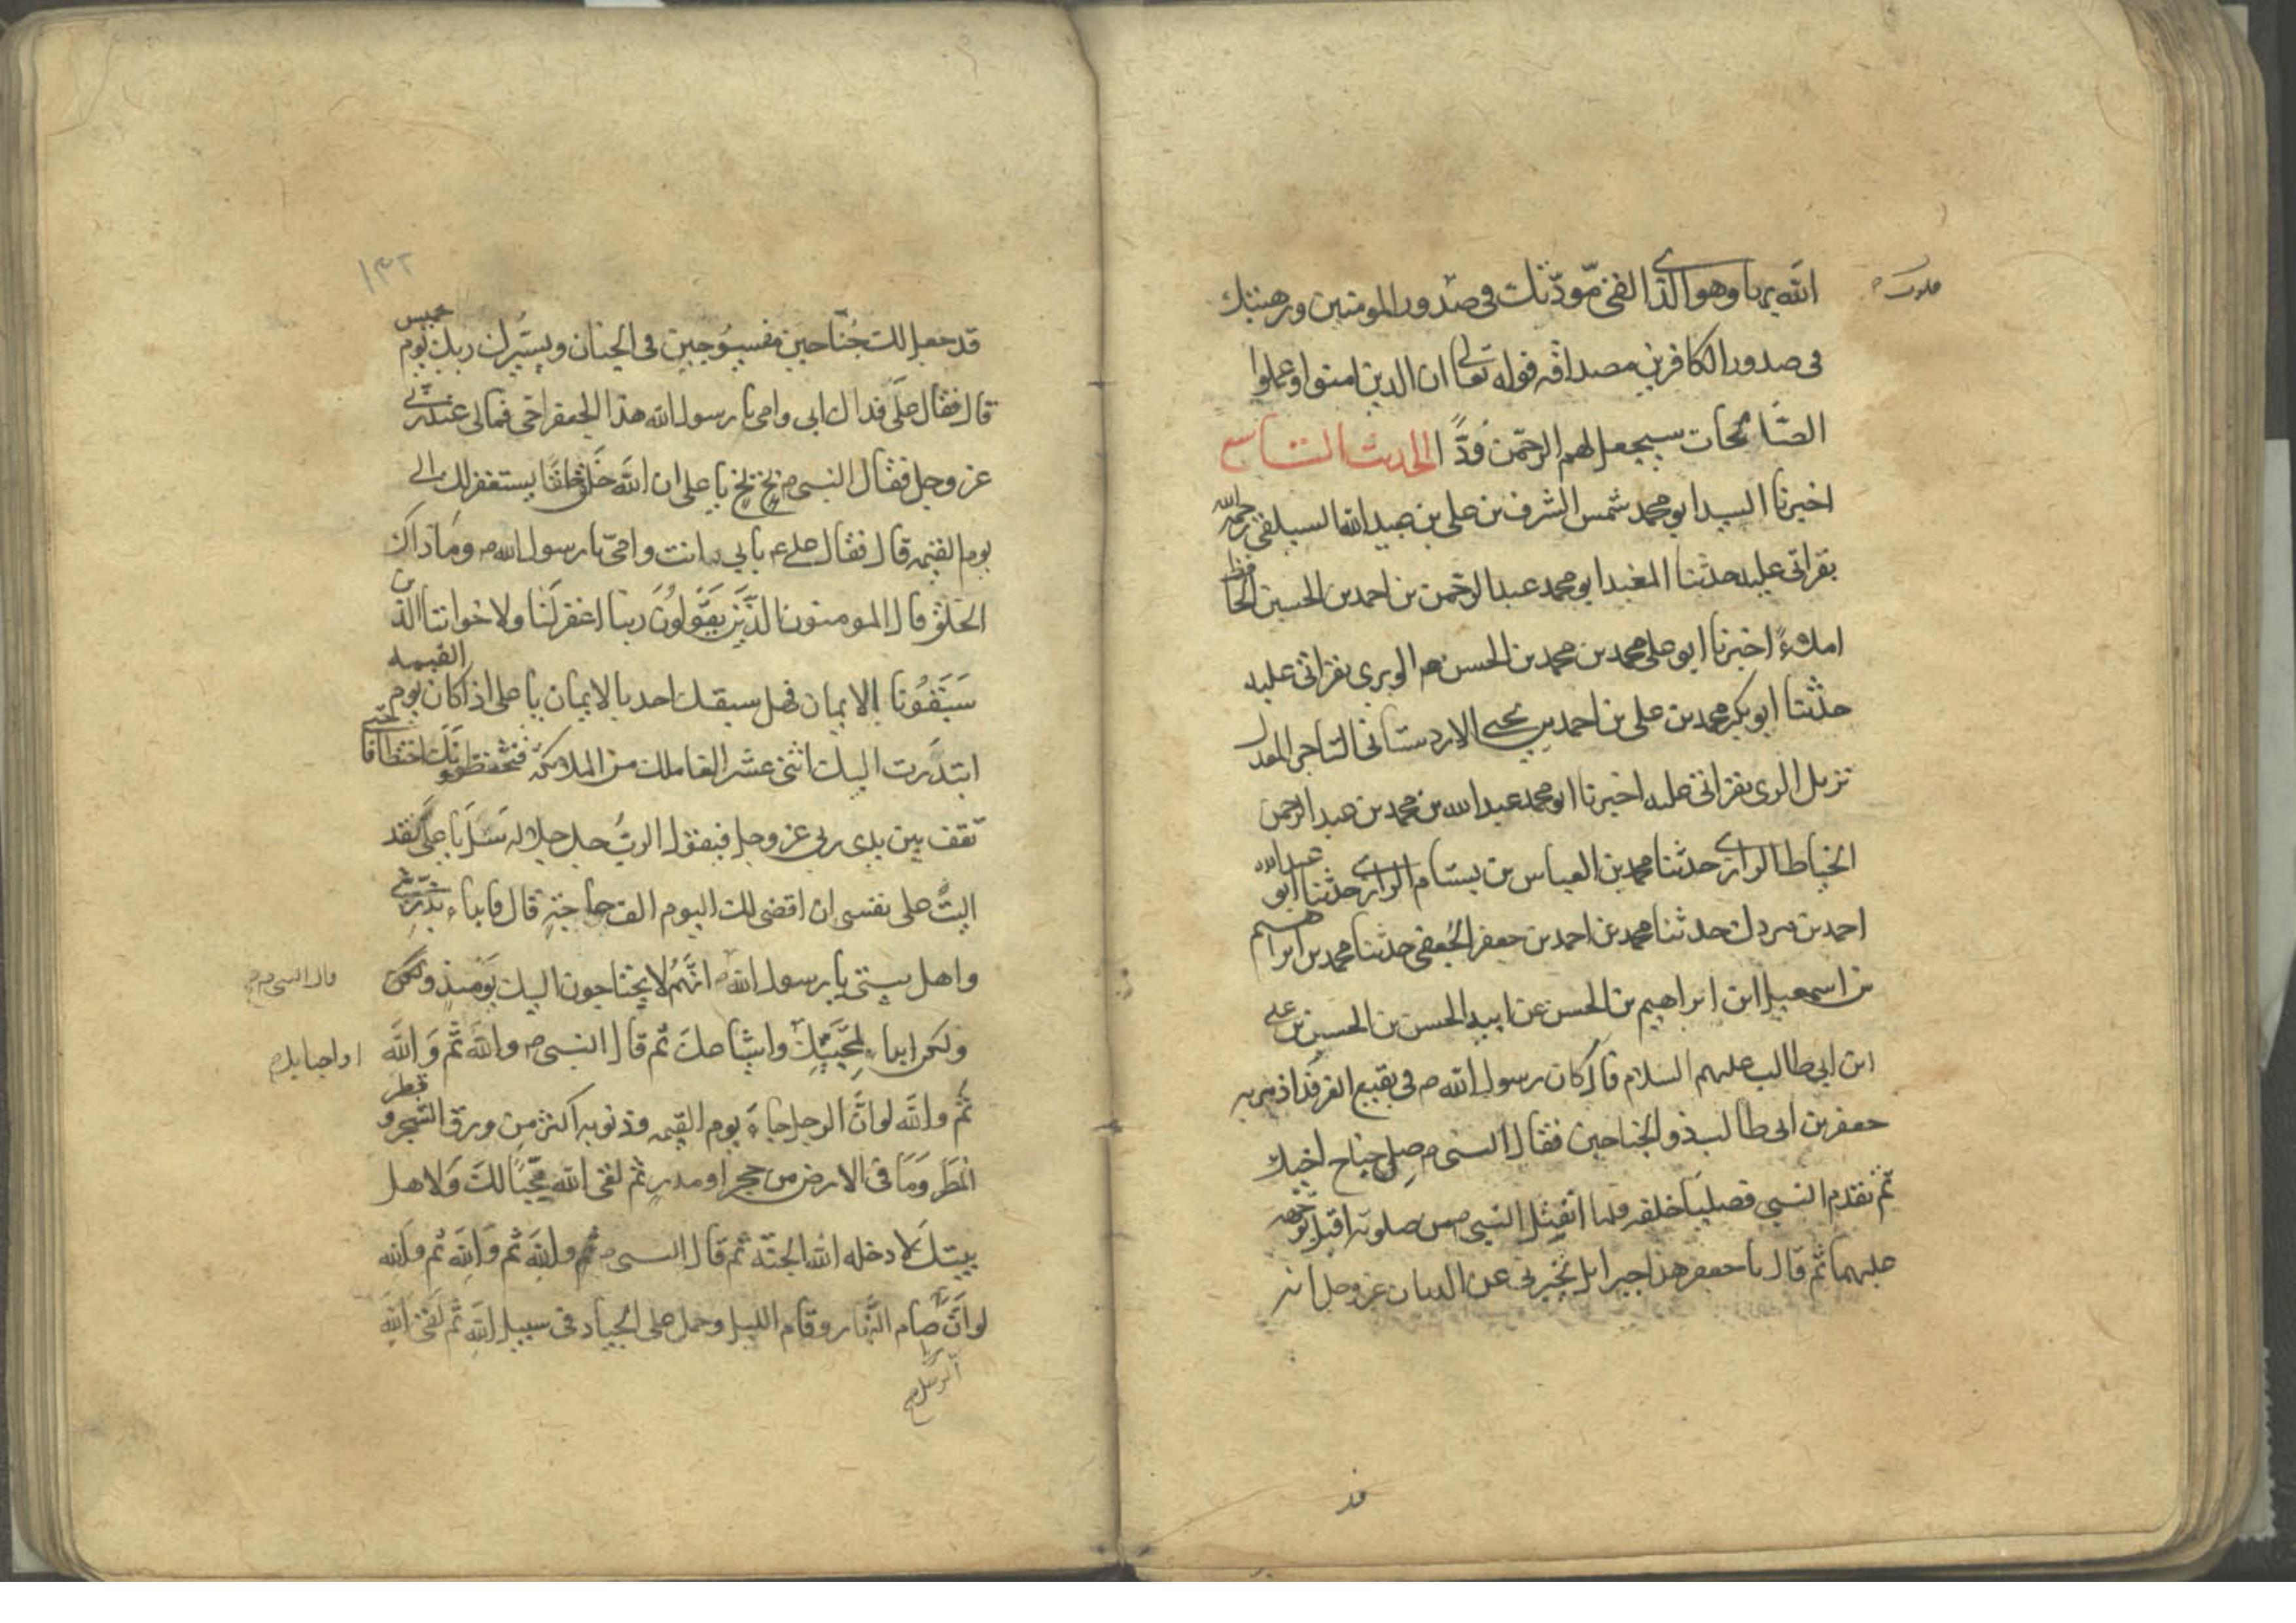 الله بها وهو الذى القى مودّتك فى صدور المومنين ورهبتك
قلوب
فى صدور الكافرين مصداقه قوله تعالى ان الذين امنوا وعملوا
الصّالحات سيجعل لهم الرحمن وُدًّا الحديث التاسع
اخبرنا السيد ابو محمد شمس الشرف بن على بن عبيد الله السيلقى رحمه الله
بقراتى عليه حدثنا المفيد ابو محمد عبد الرحمن بن احمد بن الحسين الحافظ
املاءً اخبرنا ابو على محمد بن محمد بن الحسن الوبرى بقراتى عليه
حدثنا ابو بكر محمد بن على بن احمد بن يحيى الاردستانى التاجر المعدل
نزيل الرى بقراتى عليه اخبرنا ابو محمد عبد الله بن محمد بن عبد الرحمن
الخياط الرازى حدثنا محمد بن العباس بن بسام الرازى حدثنا ابو عبد الله
احمد بن حدثنا محمد بن احمد بن جعفر الجعفى حدثنا محمد بن ابراهيم
بن اسمعيل ابن ابراهيم بن الحسن عن ابيه الحسن بن الحسين بن على
ابن ابى طالب عليهم السلام قال كان رسول الله ص فى بقيع الغرقد اذ مر به
جعفر بن ابى طالب ذو الجناحين فقال النبى ص صِل جناح اخيك
ثم تقدم النبى فصليا خلفه فلما انفتل النبى ص من صلوته اقبل بوجهه
عليهما ثم قال يا جعفر هذا جبرائل يخبرنى عن الديان عز وجل انه
قد
١٣٢
قد جعل لك جُنّاحين فى الجنان ويسيّرك ربك يوم خميس
قال فقال على فداك ابى وامى يا رسول الله هذا لجعفر اخى فمالى عند ربى
عز وجل فقال النبى ص بخ بخ يا على ان الله خلق خلقا يستغفر لك الى
يوم القيمة قال فقال على ع بابى انت وامى يا رسول الله ص وما ذاك
الخلق قال المومنون الذين يقولون ربنا اغفر لنا ولاخواننا الذين
سبقونا بالايمان فهل سبقك احد بالايمان يا على اذا كان يوم القيمه
ابتدرت اليك اثنى عشر الف ملك من الملائكة فتختطفونك اختطافا حتى
تقف بين يدى ربى عز وجل فيقول الرب جل جلاله سَل يا على فقد
اليت على نفسى ان اقضى لك اليوم الف حاجة قال فابداء بذريتى
واهل بيتى يا رسول الله ص انهم لا يحتاجون اليك يومئذ ولكن
قال النبى ص
ولكن ابداء بمحبيك واشياعك ثم قال النبى ص والله ثم والله
او احبايك
ثم والله لو ان الرجل جاء يوم القيمه وذنوبه اكثر من ورق الشجر و قطر
المطر وما فى الارض من حجر او مدر ثم لقى الله محبا لك ولاهل
بيتك لادخله الله الجنة ثم قال النبى ص ثم والله ثم والله ثم والله
لو ان صام النهار وقام الليل وحمل على الجياد فى سبيل الله ثم لقى الله
الرجل